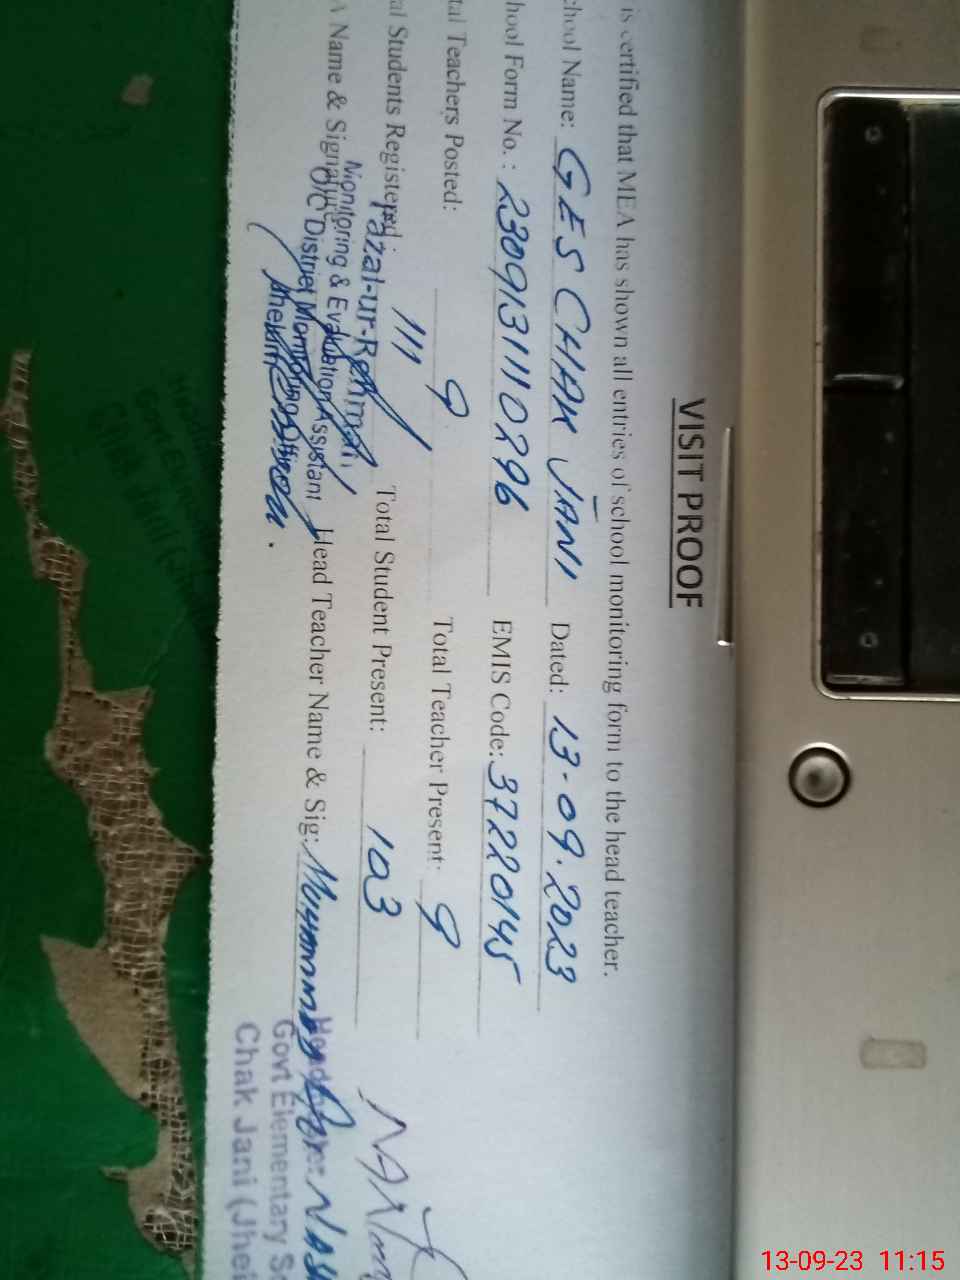 VISIT PROOF
is certified that MEA has shown all entries of school monitoring form to the head teacher.
chool Name: GES CHAK JANI Dated: 13-09.2023
hool Form No.: 2309131110296 EMIS Code: 37220145
tal Teachers Posted: 9 Total Teacher Present: 9
al Students Registered: 111 Total Student Present: 103
Fazal-ur-Rehman
A Name & Signature Head Teacher Name & Sig: Muhammad
Monitoring & Evaluation Assistant
O/O District Monitoring Officer
Jhelum
Govt Elementary S
Chak Jani (Jhel
13-09-23 11:15